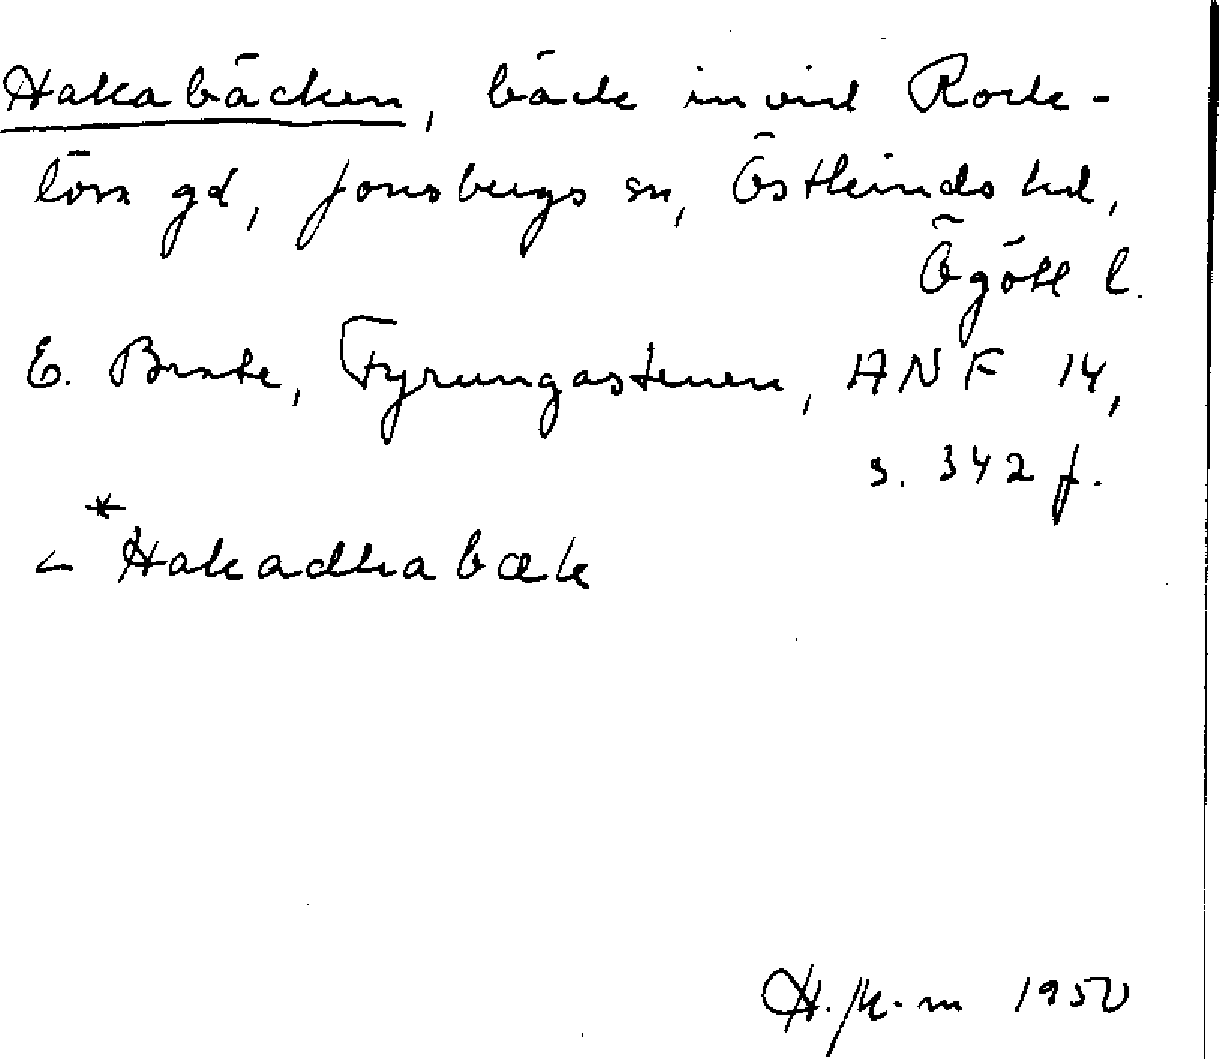 Hakabäcken, bäck invid Rock-
lösa gd, Jonsbergs sn, Östkinds hd,
Ögötl l.
E. Brate, Fyrungastenen, ANF 14,
s. 342 f.
< *Hakadhabæk
1950